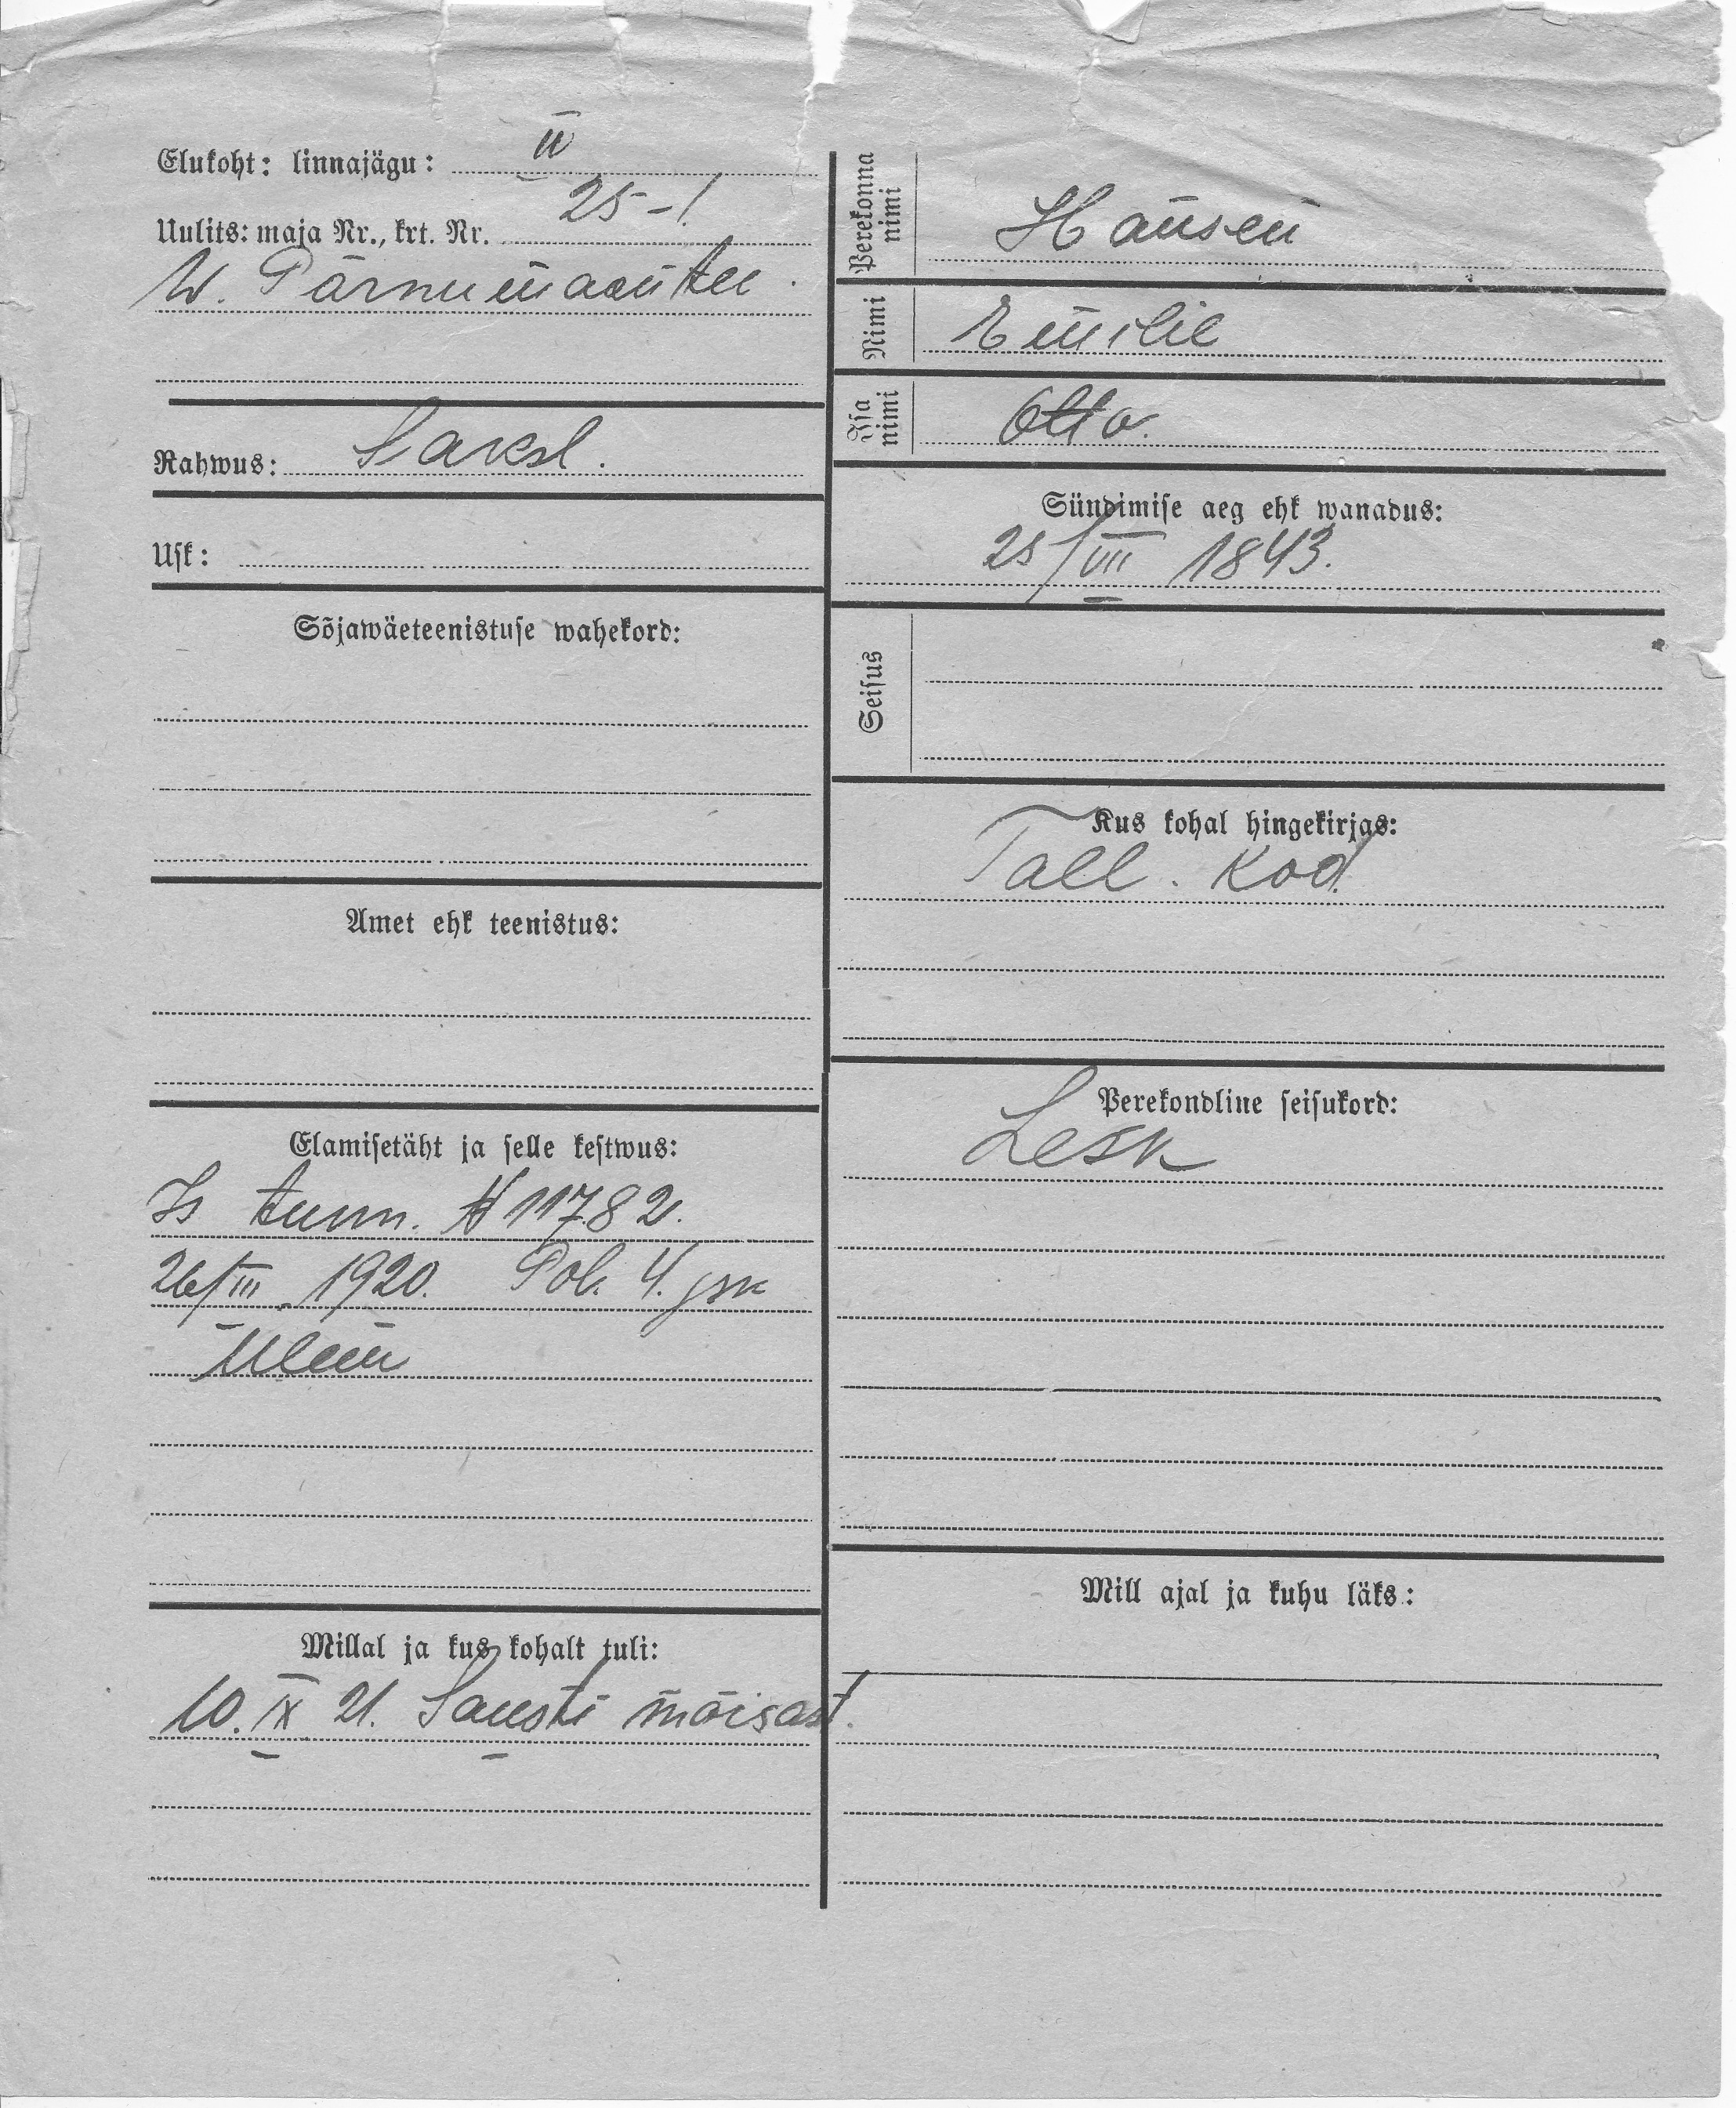 Elukoht: linnajägu: II
Uulits: maja Nr., krt. Nr. 25-1
W. Pärnu maantee.
Rahwus: Saksl.
Usk:
Sõjawäeteenistuse wahekord:
Amet ehk teenistus:
Elamisetäht ja selle kestwus:
Is tunn. № 11782.
26/III 1920. Pol. 4. jsk
Millal ja kus kohalt tuli:
10. IX 21. Sausti mõisast.
Perekonna nimi Hansen
Nimi Emilie
Isa nimi Otto.
Sündimise aeg ehk wanadus:
25/VII 1843.
Seisus
Kus kohal hingekirjas:
Tall. Kod.
Perekondline seisukord:
Lesk
Mill ajal ja kuhu läks: